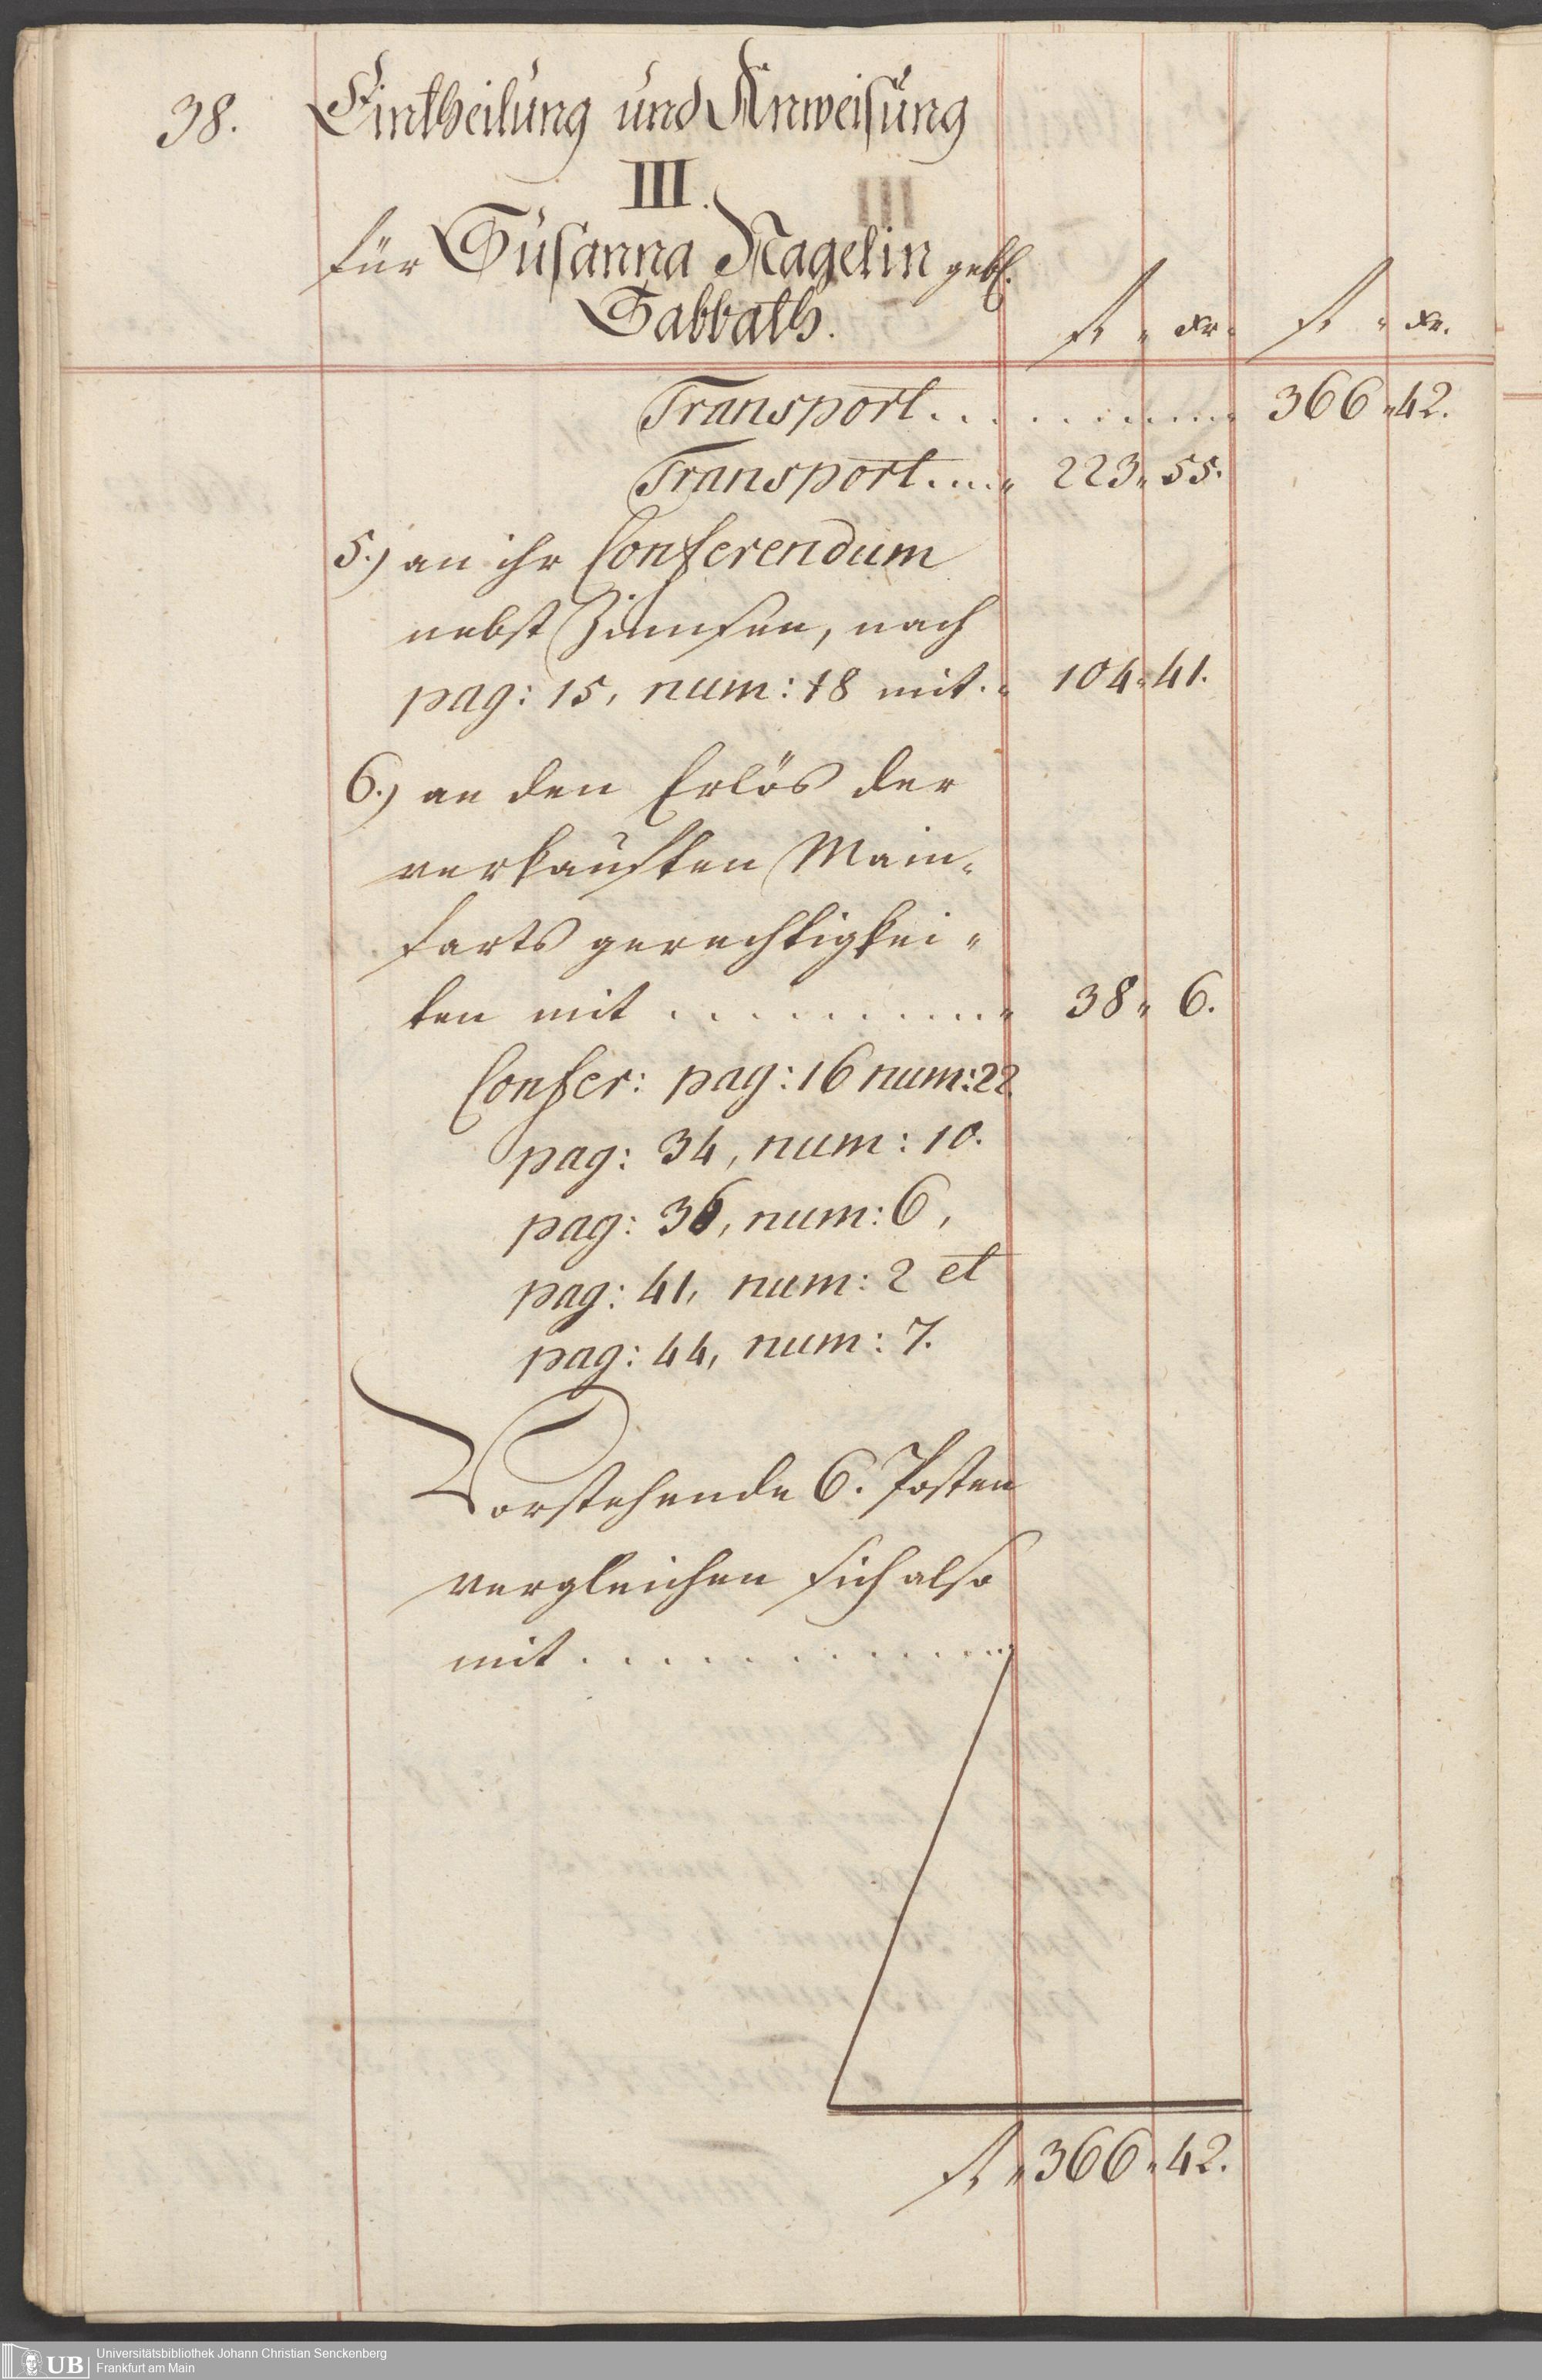 38.
Eintheilung und Anweisung
III.
für Susanna Nagelin gebl.
Sabbath.
fl. " xr. fl. " xr.
Transport . . . . . . . . . . " 366 " 42.
Transport . . . . " 223 " 55.
5.) an ihr Conferendum
nebst Zinnsen, nach
pag: 15, num: 18 mit . " 104 " 41.
6.) an den Erlös der
verkauften Main-
farts gerechtigkei-
ten mit . . . . . . . . . . " 38 " 6.
Confer: pag: 16 num: 22.
pag: 34, num: 10.
pag: 36, num: 6,
pag: 41, num: 2 et
pag: 44, num: 7.
Vorstehende 6. Posten
vergleichen sich also
mit . . . . . . . . . . . .
fl. " 366 " 42.
UB
Universitätsbibliothek Johann Christian Senckenberg
Frankfurt am Main